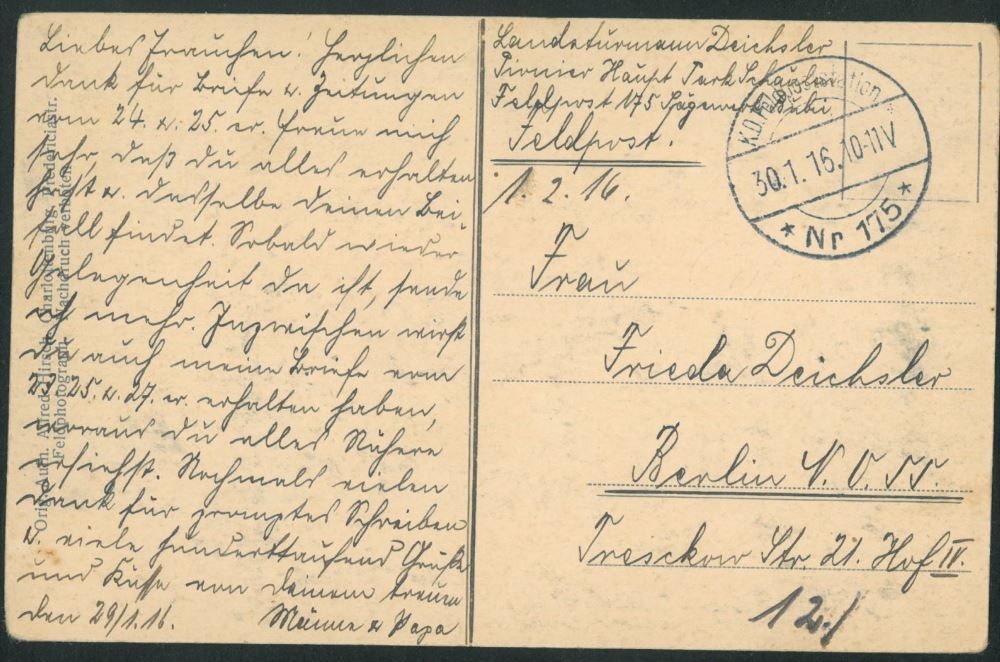 Liebes Frauchen! Herzlichen
Dank für Briefe u. Zeitungen
vom 24. u. 25. er. freue mich
sehr, daß du alles erhalten
hast u. dasselbe deinen Bei-
fall findet. Sobald wieder
Gelegenheit da ist, sende
ich mehr. Inzwischen wirst
du auch meine Briefe vom
23. 25. u. 27. er. erhalten haben,
woraus du alles Nähere
ersiehst. Nochmals vielen
Dank für promptes Schreiben
u. viele hunderttausend Grüße
und Küsse von deinem treuen
den 29/1.16. Männe u Papa
Orig.-Aufn. Alfred Hirsch, Charlottenburg, Fredericiastr.
Feldphotograph. Nachdruch verboten.
Landsturmann Deichsler
Pionier Haupt Park Schaulen
Feldpost 175 Sägewerk
Feldpost.
1.2.16.
K.D. Feldpoststation
30.1.16.10-11V
* Nr 175 *
Frau
Frieda Deichsler
Berlin N.O. 55.
Treskow Str. 21. Hof IV.